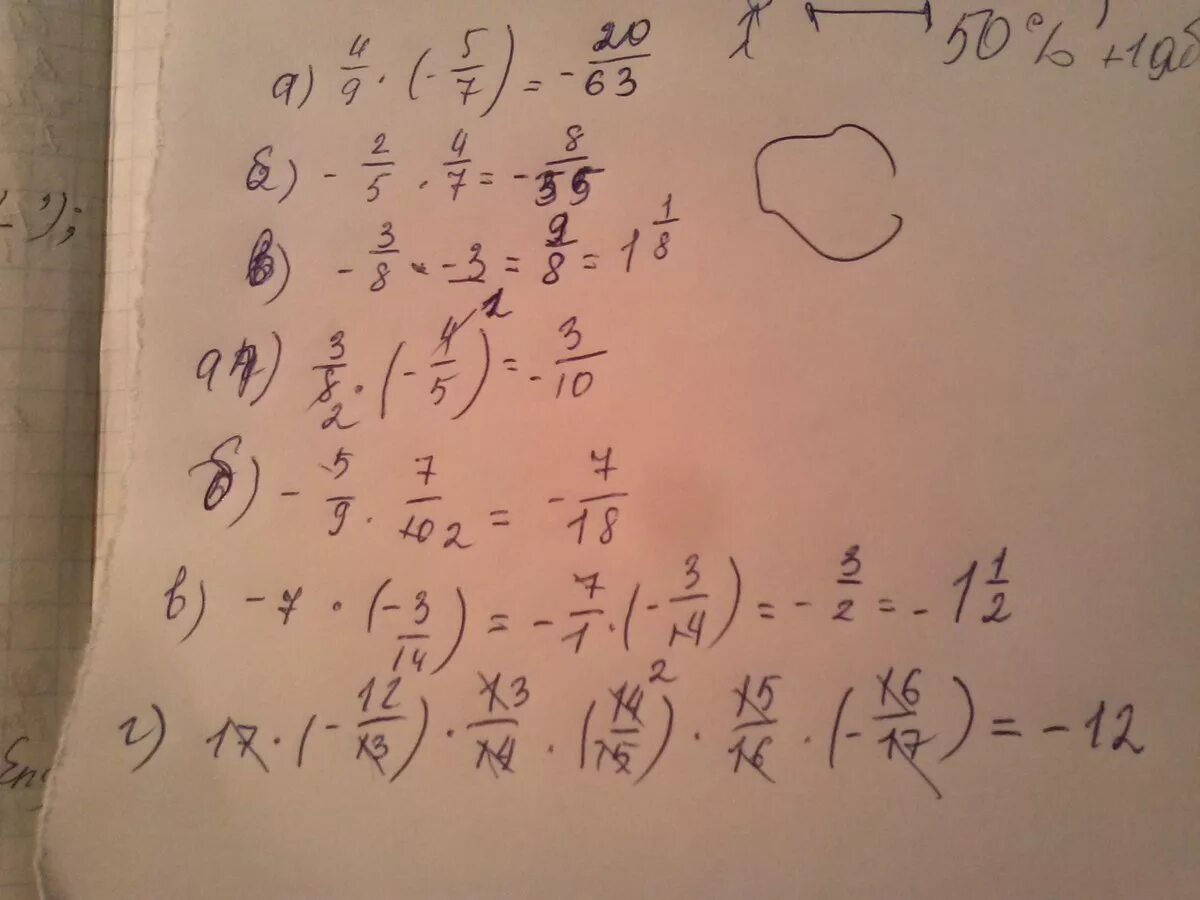 50% +1дб
а) 4/9 · (-5/7) = -20/63
б) -2/5 · 4/7 = -8/35
в) -3/8 · -3 = 9/8 = 1 1/8
а) 3/8 2 · (-4/5 1) = -3/10
б) -5/9 · 7/10 2 = -7/18
в) -7 · (-3/14) = -7/1 · (-3/14) = -3/2 = -1 1/2
г) 17 · (-12/13) · 13/14 · (14/15) · 15/16 · (-16/17) = -12